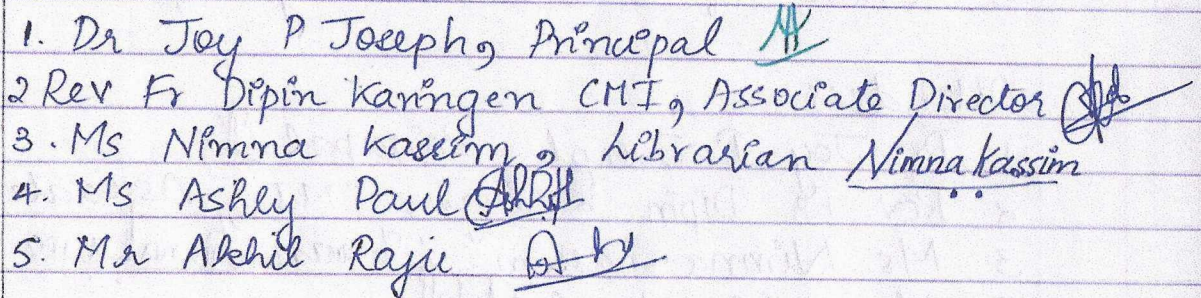 1. Dr Joy P Joseph, Principal
2 Rev Fr Dipin Karingen CMI, Associate Director
3. Ms Nimna Kassim, Librarian Nimna Kassim
4. Ms Ashly Paul
5 Mr Akhil Raju